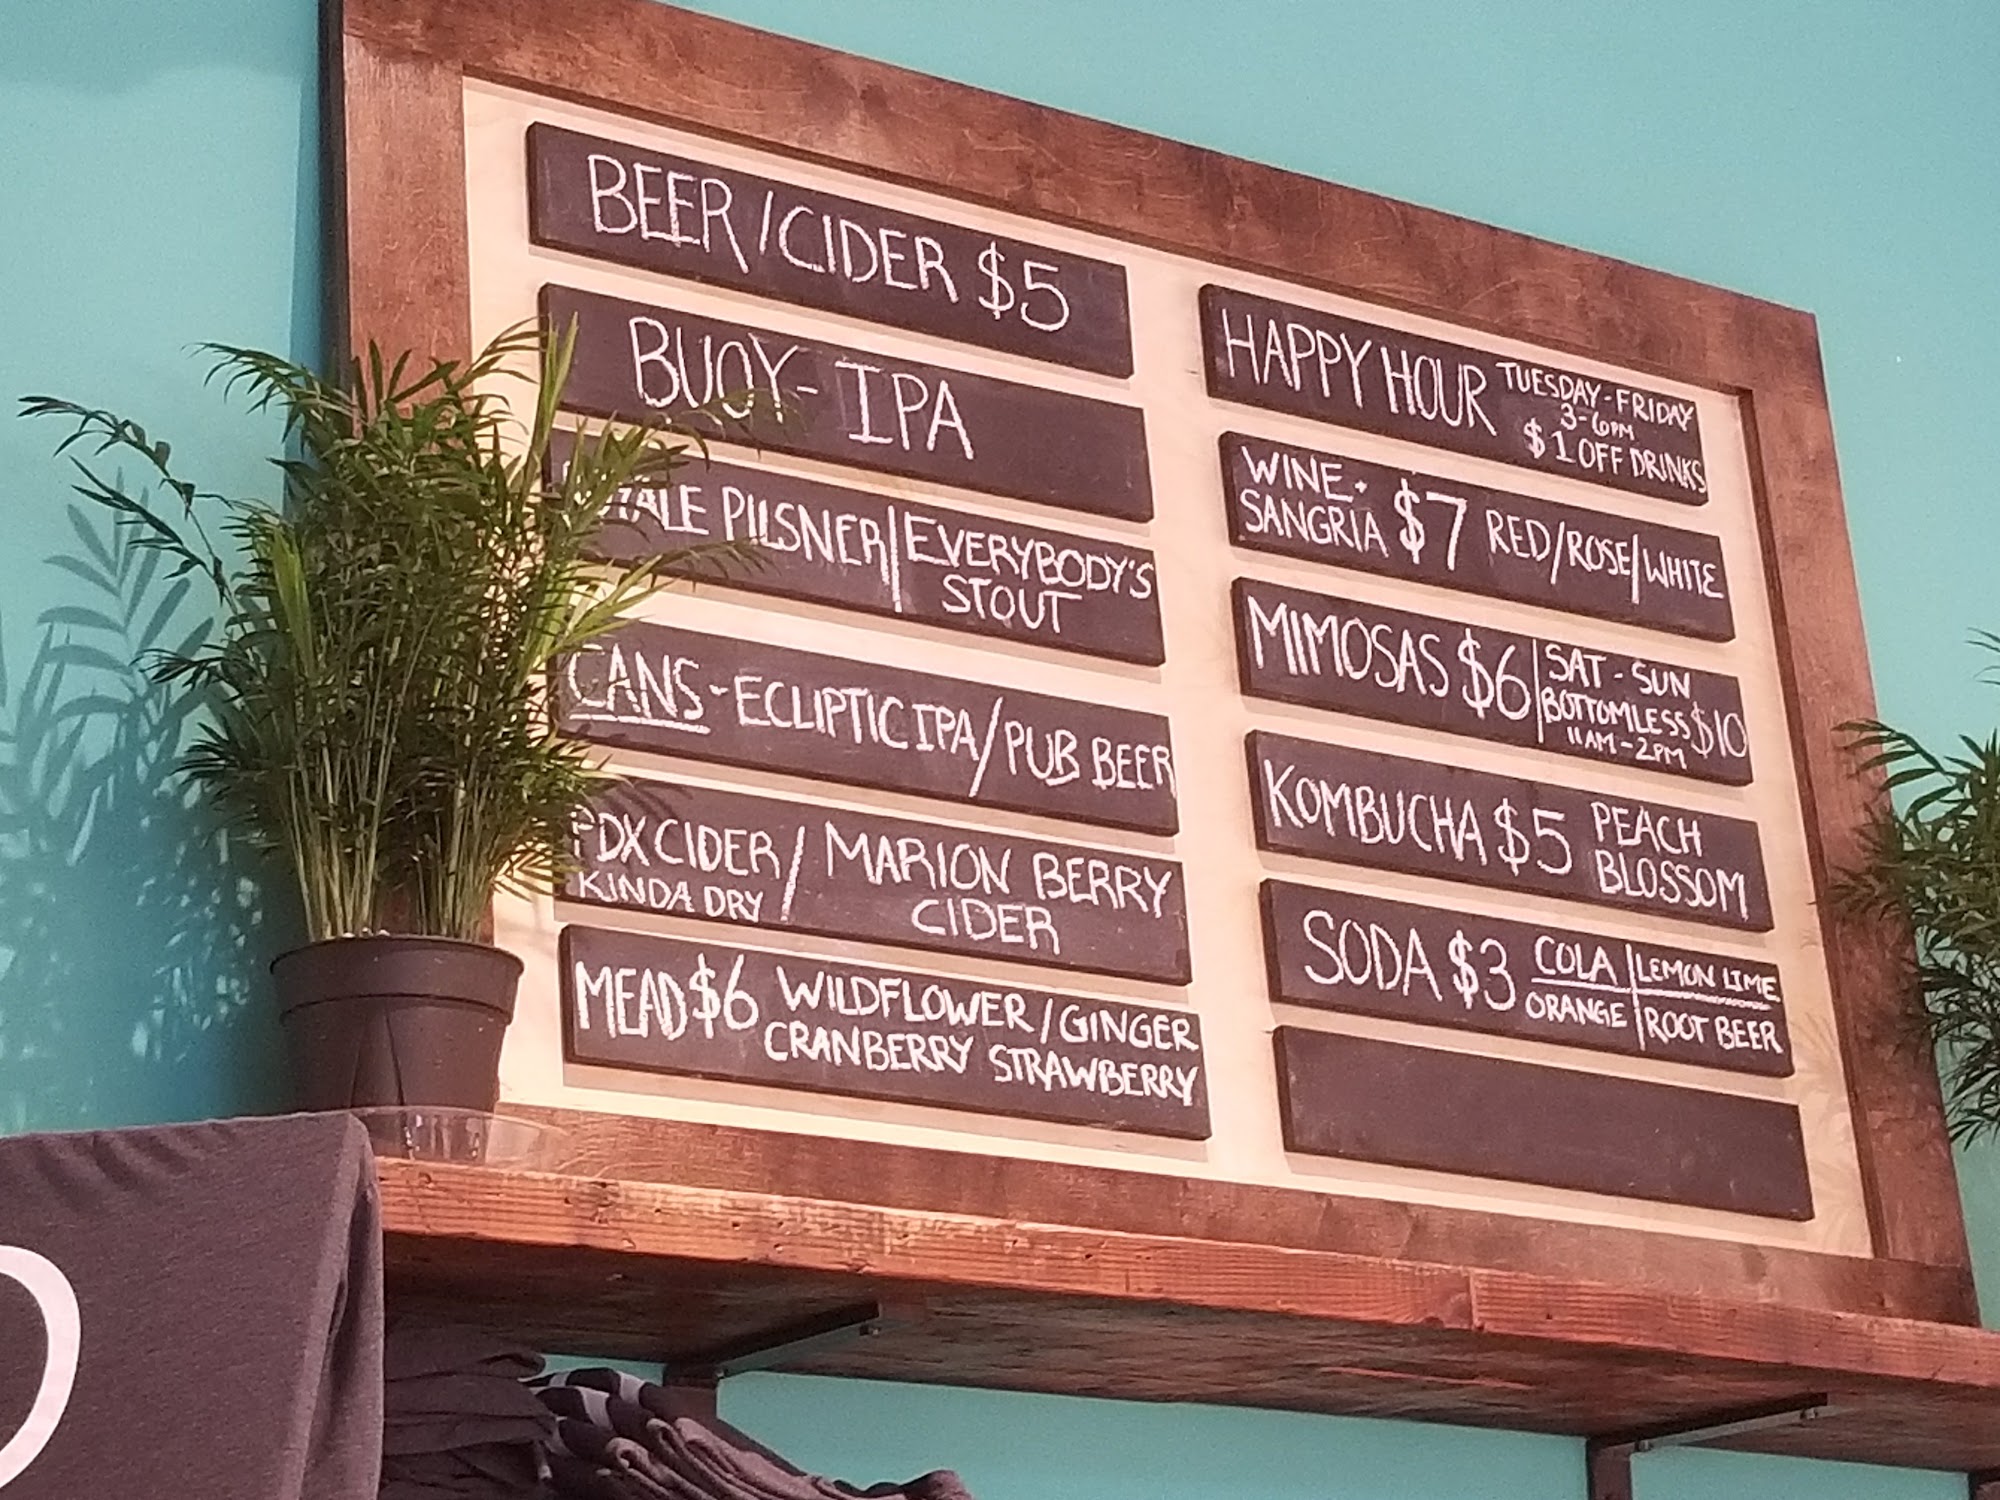 BEER/CIDER $5
BUOY-IPA
PILSNER/EVERYBODY'S
STOUT
CANS-ECLIPTIC IPA/PUB BEER
PDX CIDER/MARION BERRY
KINDA DRY CIDER
MEAD $6 WILDFLOWER/GINGER
CRANBERRY STRAWBERRY
HAPPY HOUR TUESDAY-FRIDAY
3-6PM
$1 OFF DRINKS
WINE+
SANGRIA $7 RED/ROSE/WHITE
MIMOSAS $6|SAT-SUN
BOTTOMLESS $10
11AM-2PM
KOMBUCHA $5 PEACH
BLOSSOM
SODA $3 COLA|LEMON LIME
ORANGE|ROOT BEER